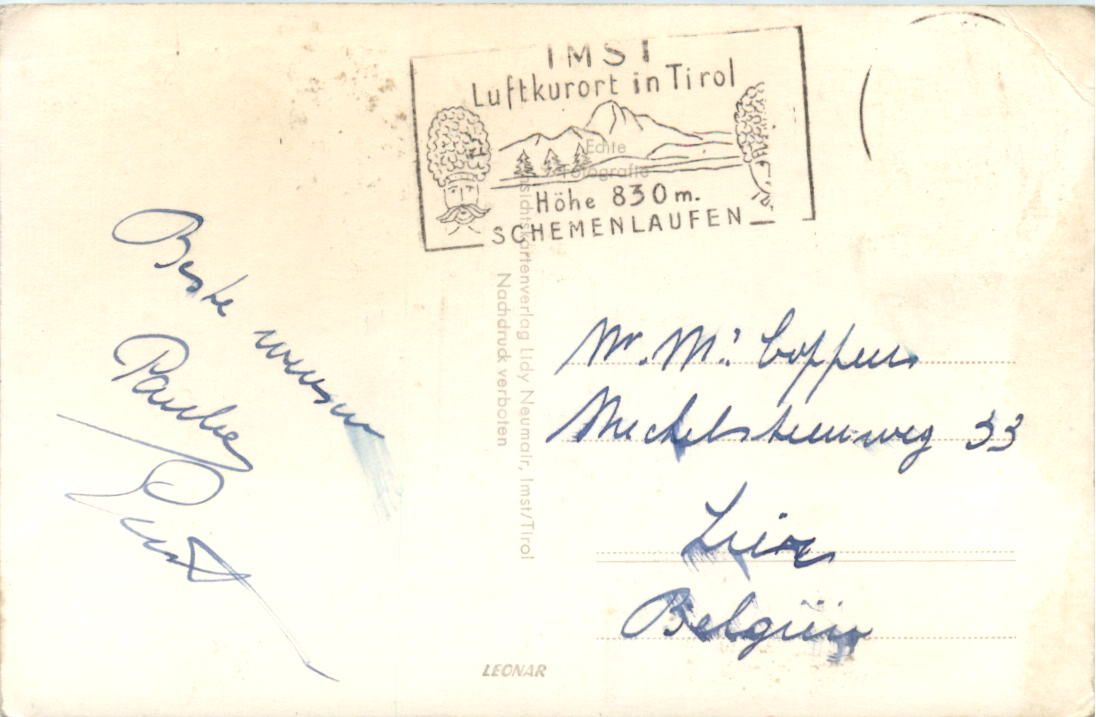 IMST
Luftkurort in Tirol
Höhe 830 m.
SCHEMENLAUFEN
Echte
Fotografie
Ansichtskartenverlag Lidy Neumair, Imst/Tirol
Nachdruck verboten
Beste wensen
Mr. Mr Coppens
Mechelsteenweg 33
Lier
België
LEONAR